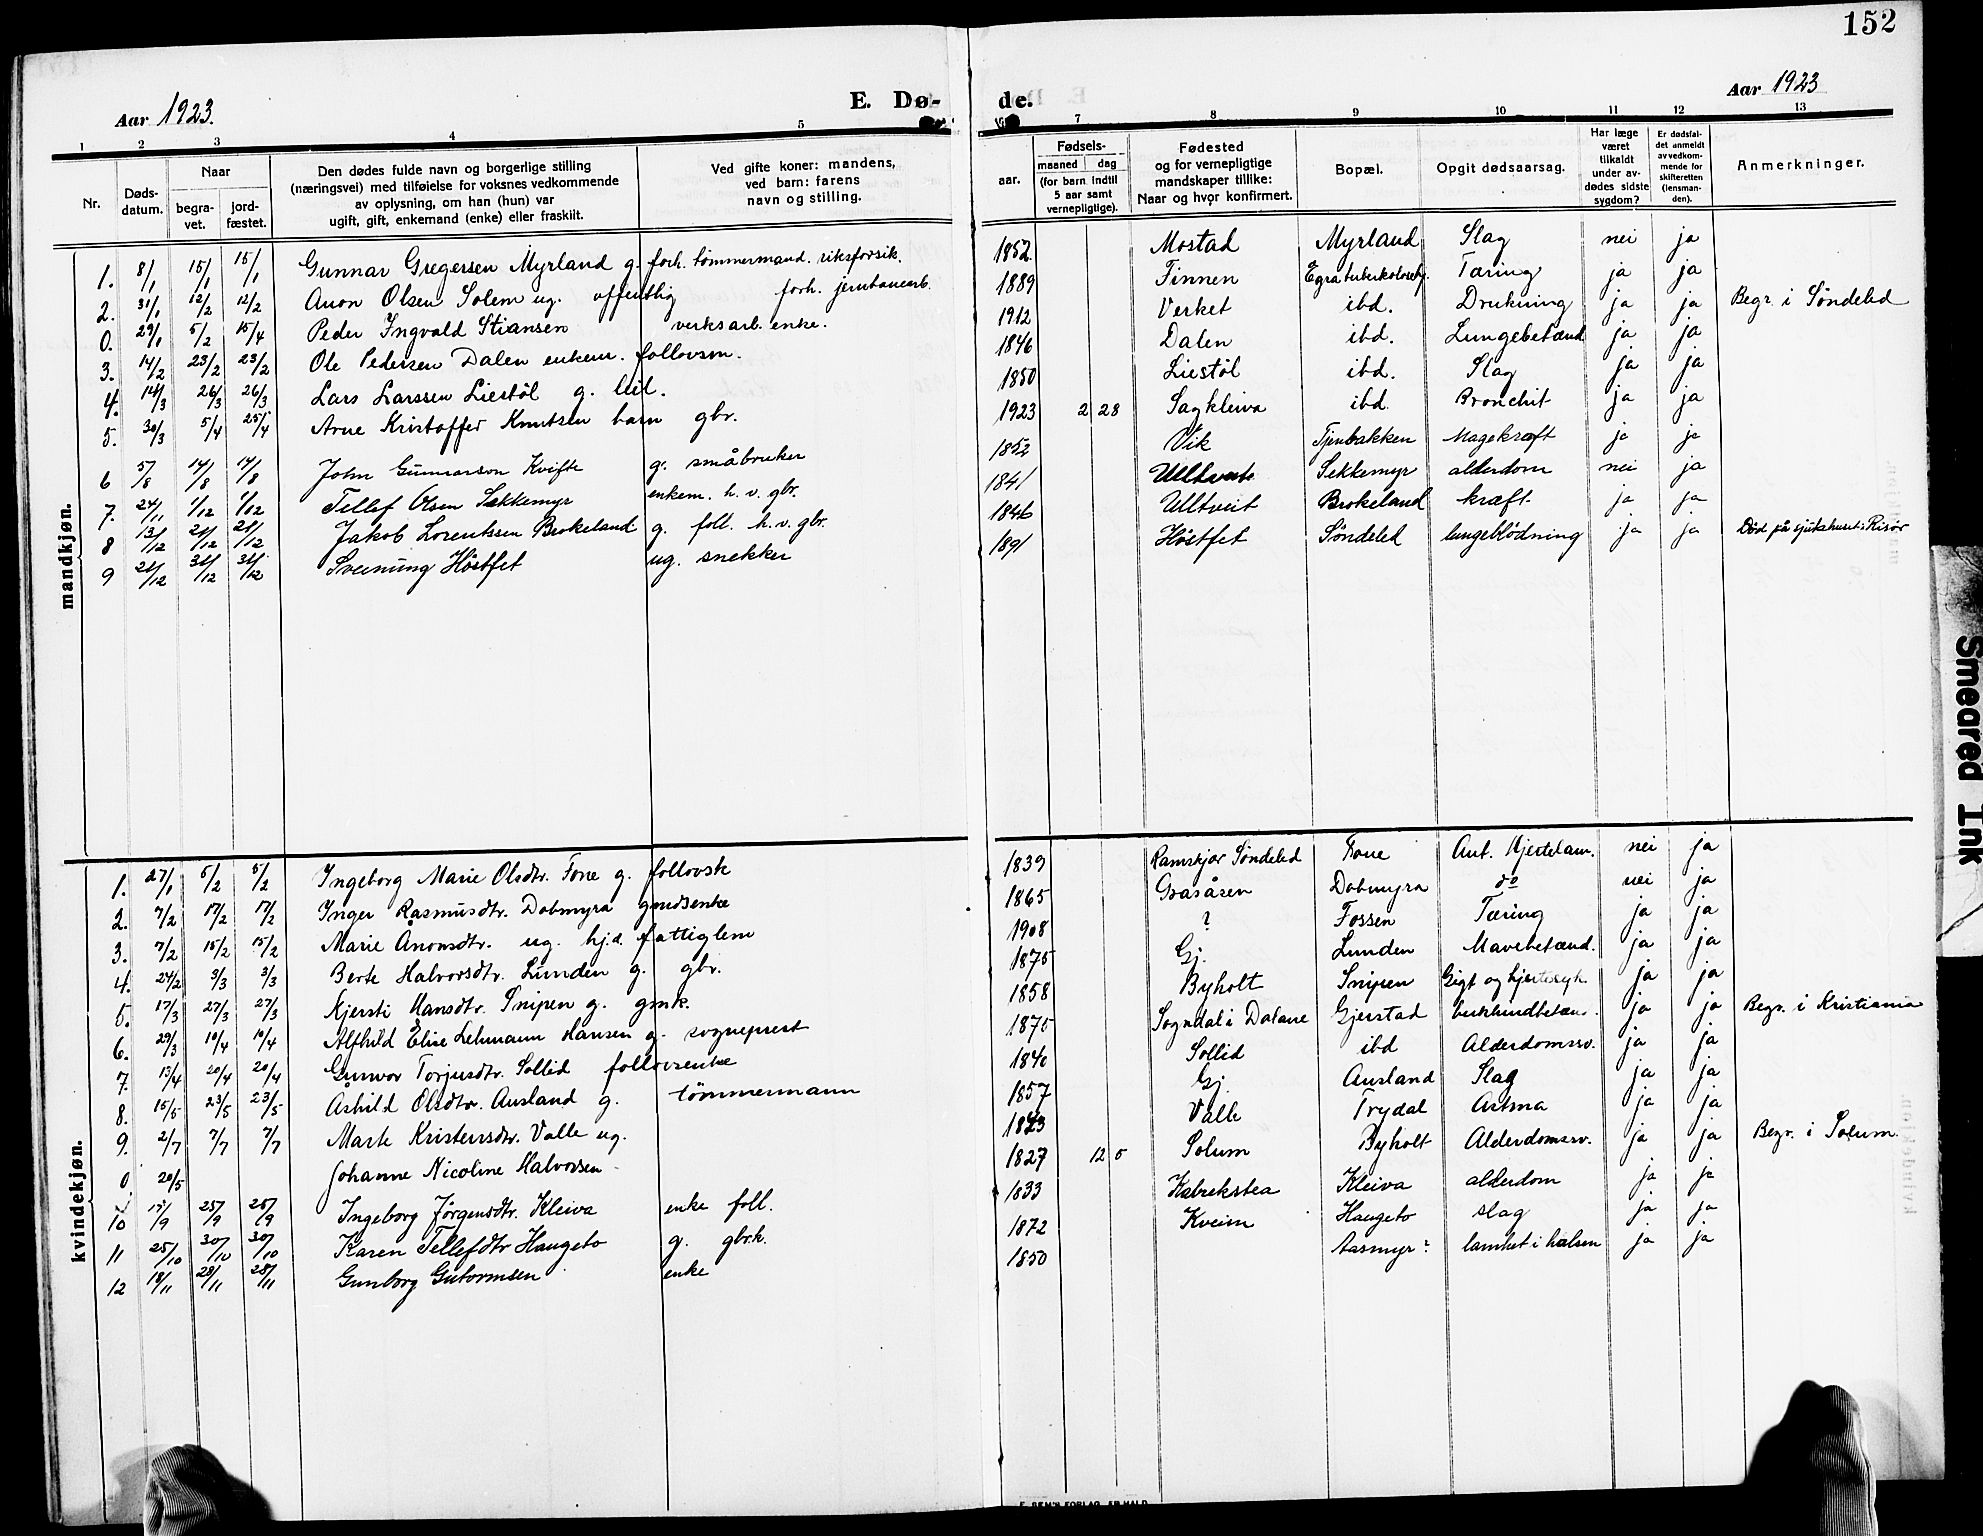 152
Aar 1923. E. Dø- de. Aar 1923
1 2 3 4 5 7 8 9 10 11 12 13
Nr. Døds-datum. Naar begra-vet. jord-fæstet. Den dødes fulde navn og borgerlige stilling (næringsvei) med tilføielse for voksnes vedkommende av oplysning, om han (hun) var ugift, gift, enkemand (enke) eller fraskilt. Ved gifte koner: mandens, ved barn: farens navn og stilling. aar. Fødsels- maaned dag (for barn indtil 5 aar samt vernepligtige). Fødested og for vernepligtige mandskaper tillike: Naar og hvor konfirmert. Bopæl. Opgit dødsaarsag. Har læge været tilkaldt under av-dødes sidste sygdom? Er dødsfal-det anmeldt av vedkom-mende for skifteretten (lensman-den). Anmerkninger.
mandkjøn.
1. 8/1 15/1 15/1 Gunnar Gregersen Myrland g. forh. tömmermand. riksforsik. 1852 Mostad Myrland Slag nei ja
2. 31/1 12/2 12/2 Anon Olsen Solem ug. offentlig forh. jernbanearb. 1889 Finnen Egra tuberkolosehj. Tæring ja ja
0. 29/1 5/2 15/4 Peder Ingvald Stiansen verksarb. enke. 1912 Verket ibd. Drukning ja ja Begr. i Söndeled
3. 14/2 23/2 23/2 Ole Pedersen Dalen enkem. follovsm. 1846 Dalen ibd. Lungebetænd ja ja
4. 14/3 26/3 26/3 Lars Larssen Liestöl g. leil. 1850 Liestöl ibd. Slag ja ja
5. 30/3 5/4 25/4 Arne Kristoffer Knutsen barn gbr. 1923 2 28 Sagkleiva ibd. Bronchit ja ja
6 5/8 14/8 14/8 John Gunnarson Kvifte g. småbruker 1852 Vik Tjenbakken Magekræft ja ja
7. 24/11 1/12 1/12 Tellef Olsen Sækkemyr enkem. h. v. gbr. 1841 Ulltveit Sekkemyr alderdom nei ja
8 13/12 21/12 21/12 Jakob Lorentssen Brokeland g. foll. h. v. gbr. 1846 Ulltveit Brokeland kræft ja ja
9 21/12 31/12 31/12 Sveinung Höstfet ug. snekker 1891 Höstfet Söndeled lungeblödning ja ja Död på sjukehuset i Risör
kvindekjøn.
1. 27/1 5/2 5/2 Ingeborg Marie Olsdtr. Fone g. follovsk 1839 Ramskjær Söndeled Fone Ant. Hjertelam. nei ja
2. 7/2 17/2 17/2 Inger Rasmusdtr. Dobmyra gmdsenke 1865 Gråsåsen Dobmyra do nei ja
3. 7/2 15/2 15/2 Marie Ånonsdtr. ug. hjd. fattiglem 1908 ? Fossen Tæring ja ja
4. 24/2 3/3 3/3 Berte Halvorsdtr. Lunden g. gbr. 1875 Gj. Lunden Mavebetænd. ja ja
5. 17/3 27/3 27/3 Kjersti Hansdtr. Snipen g. gmk. 1858 Byholt Snipen Gigt og hjertesyk. ja ja
6. 29/3 10/4 10/4 Alfhild Elise Lehmann Hansen g. sogneprest 1875 Sogndal i Dalane Gjerstad bukhindbetæn. ja ja Begr. i Kristiania
7. 13/4 20/4 20/4 Gunvor Torjusdtr. Sollid follovsenke 1840 Sollid ibd Alderdomssv. ja ja
8. 15/5 23/5 23/5 Åshild Olsdtr. Ausland g. tömmermann 1857 Gj. Ausland Slag ja ja
9. 2/7 7/7 7/7 Marte Kristensdtr. Valle ug. 1843 Valle Trydal Astma ja ja
0 20/5 Johanne Nicoline Halvorsen 1827 12 5 Solum Byholt Alderdomssv. ja ja Begr. i Solum.
10 17/9 25/9 25/9 Ingeborg Jörgensdtr. Kleiva enke foll. 1833 Kabrekstea Kleiva alderdom ja ja
11 25/10 30/10 30/10 Karen Tellefdtr Haugebo g. gbrk. 1872 Kveim Haugebo slag ja ja
12 18/11 28/11 28/11 Gunborg Gutormsen enke 1850 Aasmyr? lamhet i halsen ja ja
Smeared Ink